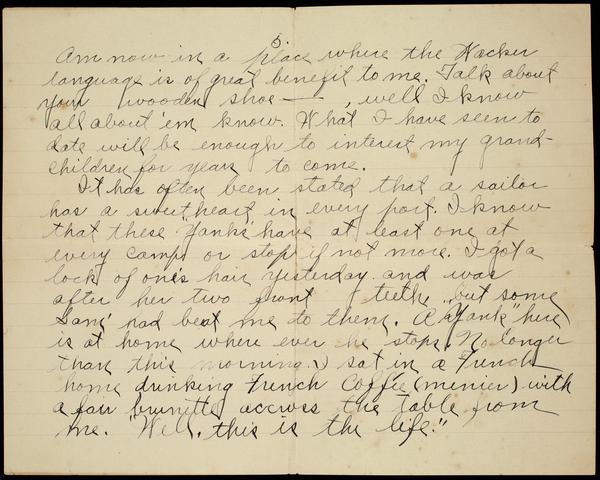 5
Am now in a place where the Hacker
language is of great benefit to me. Talk about
your wooden shoe — , well I know
all about 'em know. What I have seen to
date will be enough to interest my grand-
children for years to come.
It has often been stated that a sailor
has a sweetheart in every port. I know
that these Yanks have at least one at
every camp or stop if not more. I got a
lock of one's hair yesterday and was
after her two front teeth but some
had beat me to them. A "Yank" here
is at home where ever he stops. No longer
than this morning I sat in a French
home drinking French Coffie (menier) with
a fair brunette accross the table from
me. "Well, this is the life."